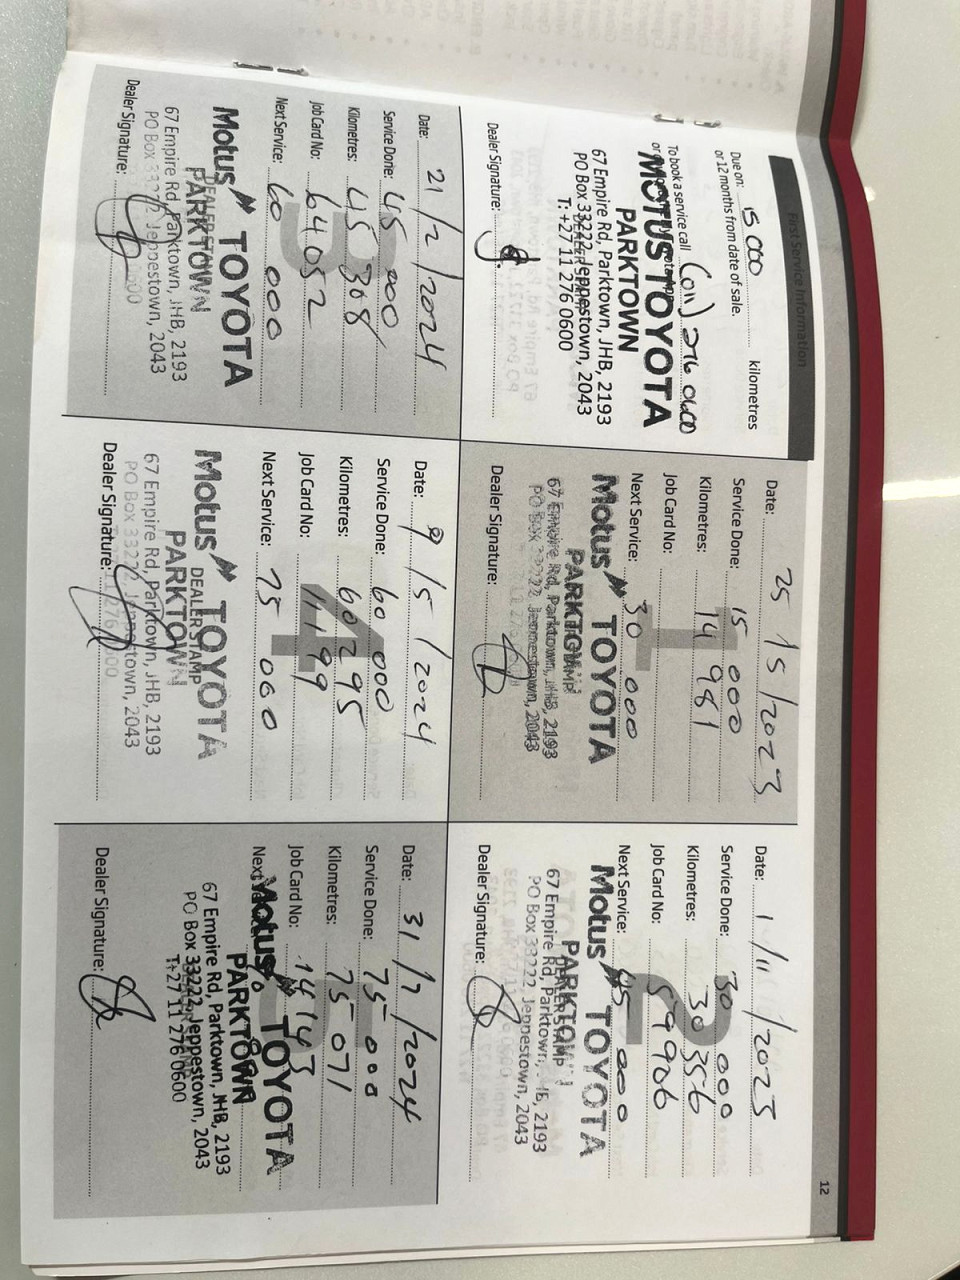 First Service Information
Due on: 15 000 kilometres
or 12 months from date of sale.
To book a service call (011) 276 0600
MOTUS TOYOTA
PARKTOWN
67 Empire Rd, Parktown, JHB, 2193
PO Box 33222, Jeppestown, 2043
T: +27 11 276 0600
Dealer Signature:
Date: 25/5/2023
Service Done: 15 000
Kilometres: 14 981
Job Card No:
Next Service: 30 000
1
Motus TOYOTA
PARKTOWN
67 Empire Rd, Parktown, JHB, 2193
PO Box 33222, Jeppestown, 2043
Dealer Signature:
Date: 1/11/2023
Service Done: 30 000
Kilometres: 30 356
Job Card No: 59906
Next Service: 45 000
2
Motus TOYOTA
DEALER STAMP
PARKTOWN
67 Empire Rd, Parktown, 2193
PO Box 33222, Jeppestown, 2043
Dealer Signature:
Date: 21/2/2024
Service Done: 45 000
Kilometres: 45 308
Job Card No: 64052
Next Service: 60 000
3
Motus TOYOTA
DEALER STAMP
PARKTOWN
67 Empire Rd, Parktown, JHB, 2193
PO Box 33222, Jeppestown, 2043
Dealer Signature:
Date: 9/5/2024
Service Done: 60 000
Kilometres: 60 295
Job Card No: 11199
Next Service: 75 000
4
Motus TOYOTA
DEALER STAMP
PARKTOWN
67 Empire Rd, Parktown, JHB, 2193
PO Box 33222, Jeppestown, 2043
Dealer Signature:
Date: 31/7/2024
Service Done: 75 000
Kilometres: 75 071
Job Card No: 14143
Next
Motus TOYOTA
PARKTOWN
67 Empire Rd, Parktown, JHB, 2193
PO Box 33222, Jeppestown, 2043
T:+27 11 276 0600
Dealer Signature:
12